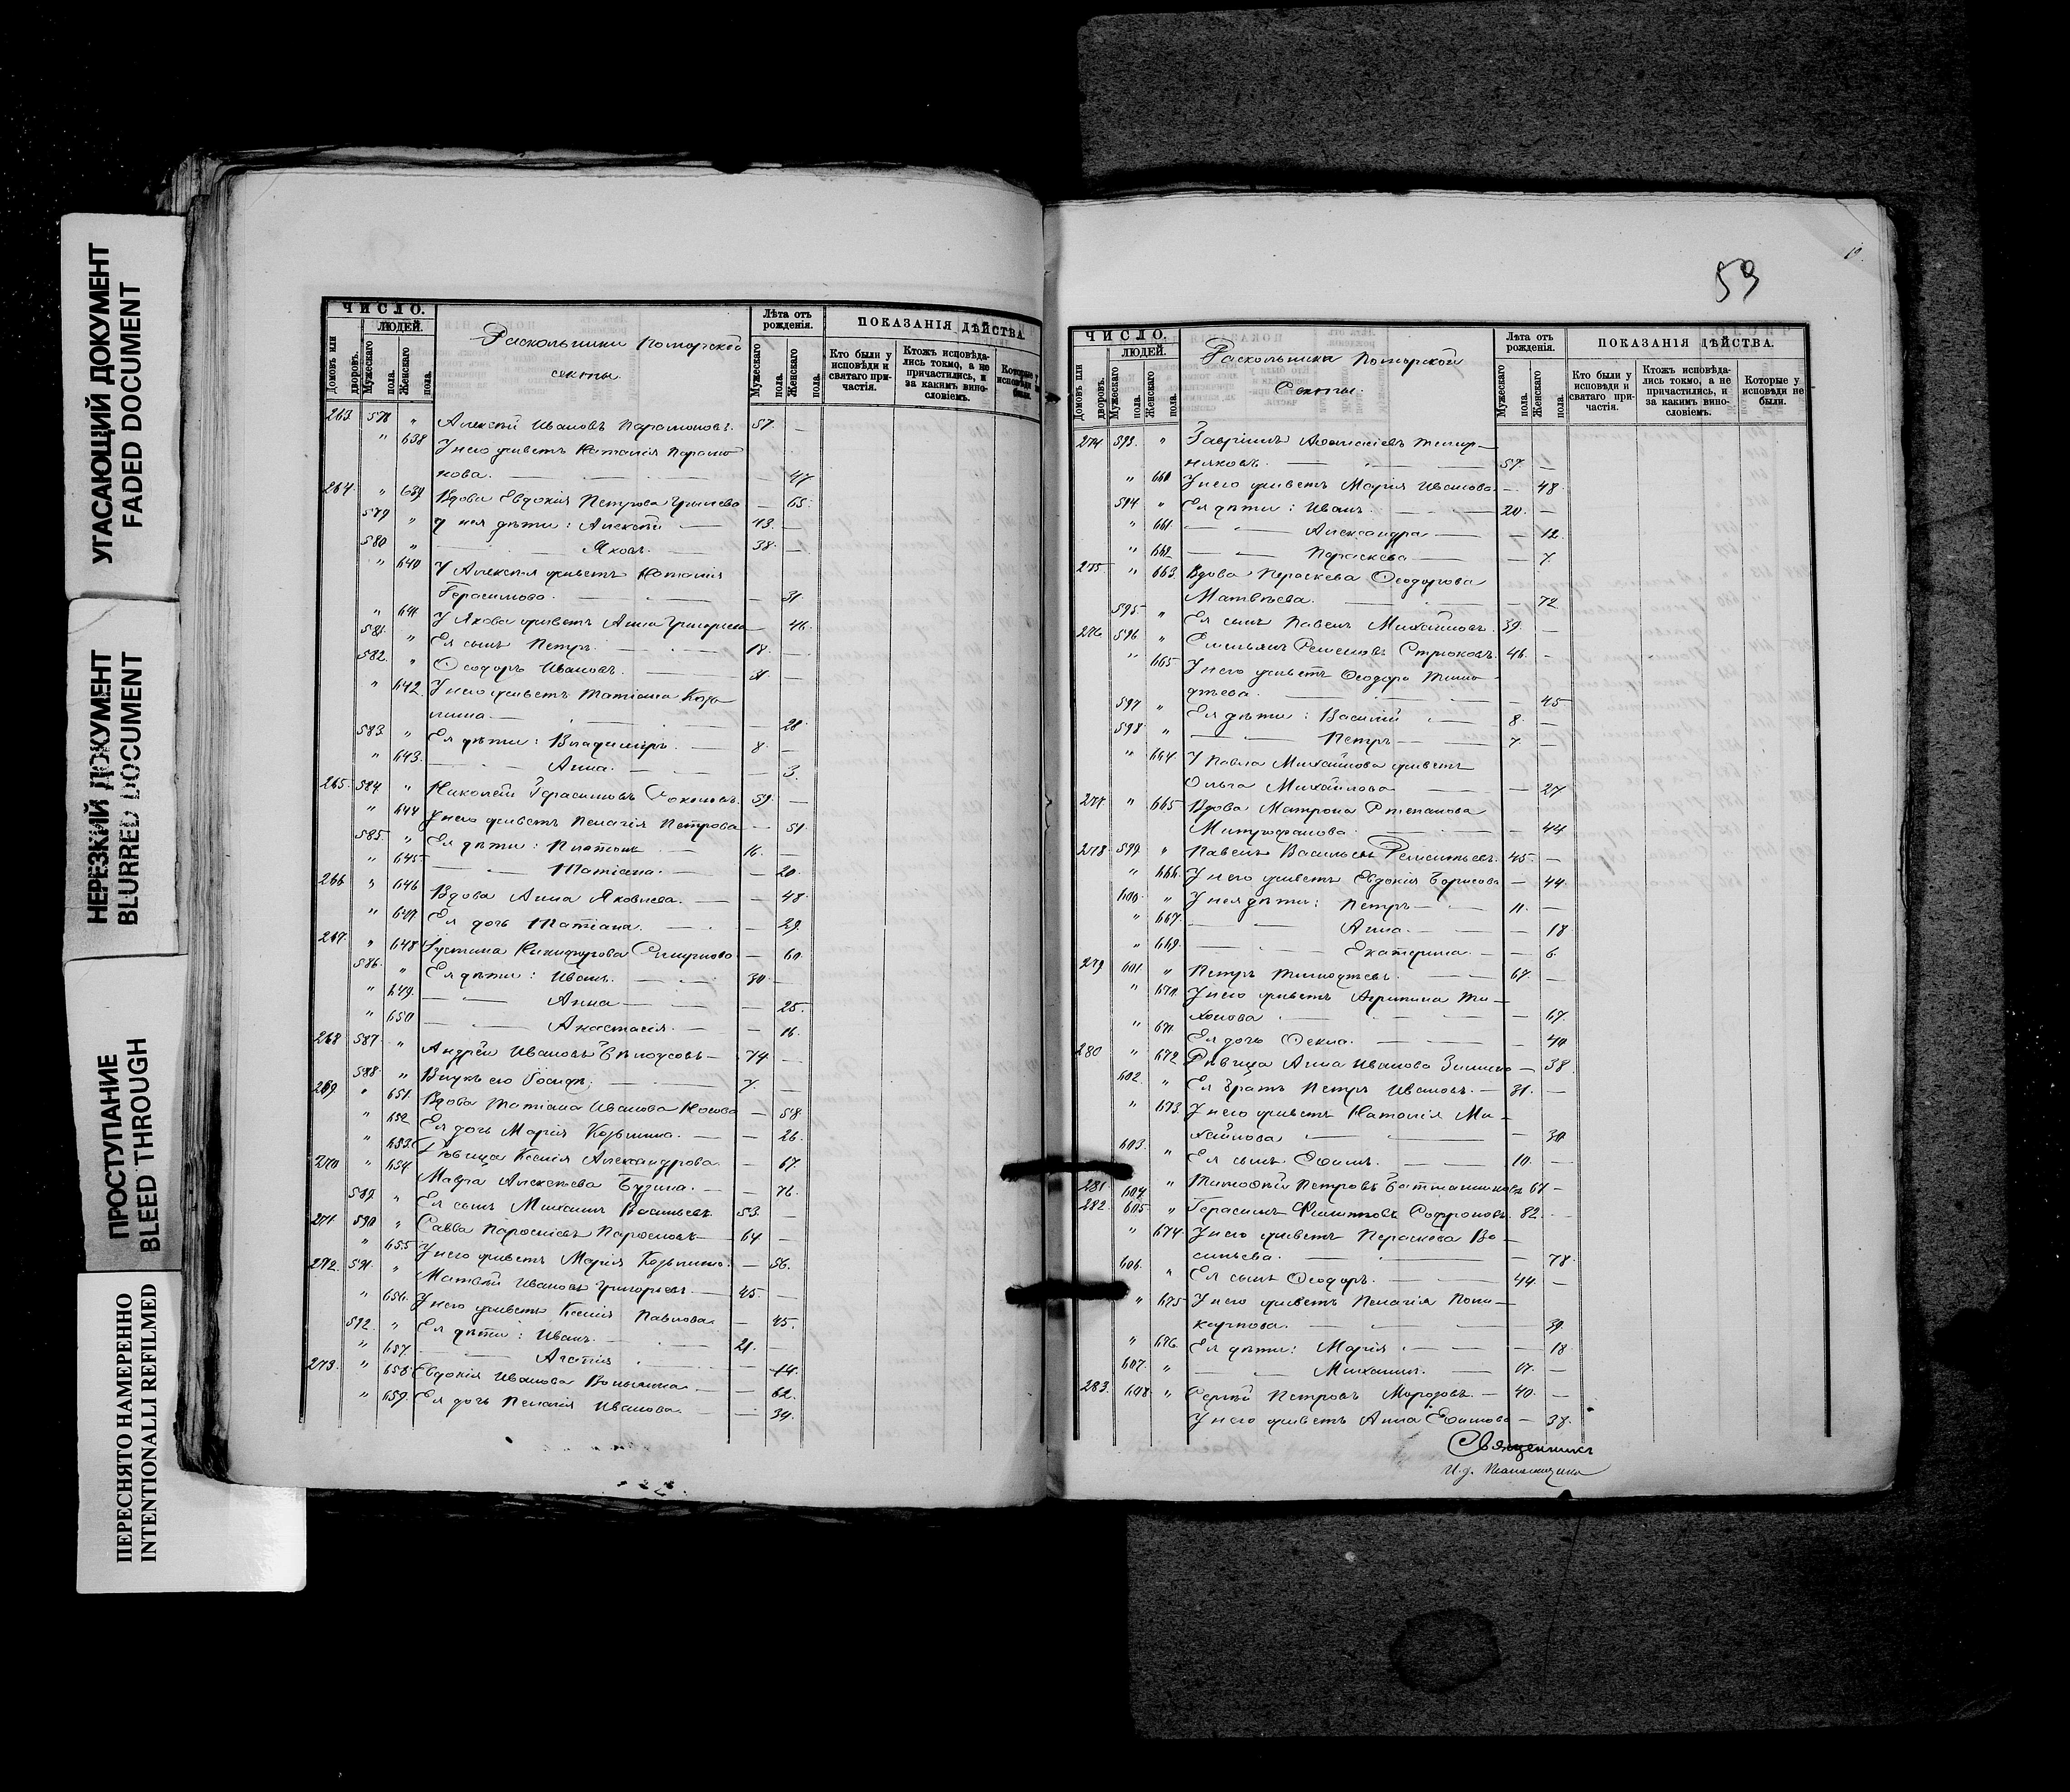 УГАСАЮЩИЙ ДОКУМЕНТ
FADED DOCUMENT
НЕРЕЗКИЙ ДОКУМЕНТ
BLURRED DOCUMENT
ПРОСТУПАНИЕ
BLEED THROUGH
ПЕРЕСНЯТО НАМЕРЕННО
INTENTIONALLI REFILMED
ЧИСЛО.
ЛЮДЕЙ.
Домовъ или дворовъ.
Мужескаго пола.
Женскаго пола.
Раскольники Поморской
секты
Лѣта отъ рожденія.
Мужескаго пола.
Женскаго пола.
ПОКАЗАНІЯ ДѢЙСТВА
Кто были у исповѣди и святаго причастія.
Ктожъ исповѣдались токмо, а не причастились, и за какимъ винословіемъ.
Которые у исповѣди не были.
263 578 " Алексѣй Ивановъ Парамоновъ. 57. —
" 638 У него живетъ Наталія Парамо
нова. — 47
264. " 639 Вдова Евдокія Петрова — 65.
579 " У нея дѣти: Алексѣй — 43. —
580 " — Яковъ. 38. —
" 640 У Алексѣя живетъ Наталія
Герасимова. — 31.
" 641 У Якова живетъ Анна — 46.
581. " Ея сынъ Петръ. 18. —
582. " Ѳеодоръ Ивановъ.
" 642. У него живетъ Татіана Козь
мина. — 28
583 " Ея дѣти: Владиміръ. 8. —
" 643. — Анна. — 3.
265. 584 " Николай Герасимовъ 59. —
" 644 У него живетъ Пелагія Петрова — 51.
585. " Ея дѣти: Платонъ 16. —
" 645 — Татіана. — 20.
266 " 646 Вдова Анна Яковлева. — 48.
" 647 Ея дочь Татіана. — 29.
267. " 648 Никифорова Смирнова — 60.
586. " Ея дѣти: Иванъ. 30. —
" 649. — Анна — 25.
" 650 — Анастасія. — 16.
268 587. " Андрей Ивановъ Бѣлоусовъ — 74 —
588. " Внукъ его 7. —
269. " 651. Вдова Татіана Иванова Носова — 58.
" 652 Ея дочь Марія Козьмина. — 26.
" 653. Дѣвица Ксенія Александрова. — 67.
270 " 654 Мавра Алексѣева Бузина. — 76.
589. " Ея сынъ Михаилъ Васильевъ. 53. —
271. 590 " Савва 64 —
" 655 У него живетъ Марія Козьмина. — 56.
272. 591. " Матвѣй Ивановъ Григорьевъ. 45. —
" 656. У него живетъ Ксенія Павлова — 45.
592. " Ея дѣти: Иванъ. 21. —
" 657. — Агаѳія — 14.
273. " 658 Евдокія Иванова — 62.
" 659. Ея дочь Пелагія Иванова. — 34.
59
ЧИСЛО.
ЛЮДЕЙ.
Домовъ или дворовъ.
Мужескаго пола.
Женскаго пола.
Раскольники Поморской
Секты.
Лѣта отъ рожденія.
Мужескаго пола.
Женскаго пола.
ПОКАЗАНІЯ ДѢЙСТВА.
Кто были у исповѣди и святаго причастія.
Ктожъ исповѣдались токмо, а не причастились, и за какимъ винословіемъ.
Которые у исповѣди не были.
274 593. " Гавріилъ
57. —
" 660 У него живетъ Марія Иванова — 48.
594 " Ея дѣти: Иванъ. 20. —
" 661. — Александра — 12.
" 662. — Параскева — 7.
275 " 663. Вдова Параскева Ѳеодорова
Матвѣева. — 72.
595. " Ея сынъ Павелъ Михайловъ. 39. —
276 596 " Емельянъ Семеновъ Стрюковъ. 46. —
" 665 У него живетъ Ѳеодора Тимо
ѳеева. — 45
597 " Ея дѣти: Василій 8. —
598. " — Петръ 7. —
" 664. У Павла Михайлова живетъ
Ольга Михайлова — 27
277 " 665 Вдова Матрона Степанова
Митрофанова — 44
278 599. " Павелъ Васильевъ 45. —
" 666. У него живетъ Евдокія Борисова — 44.
600. " У нея дѣти: Петръ 11. —
" 667. — Анна. — 18
" 669. — Екатерина. — 6.
279 601. " Петръ Тимоѳеевъ. 67. —
" 670. У него живетъ Агрипина Ти—
хонова — 67.
" 671. Ея дочь — 40
280 " 672 Дѣвица Анна Иванова Зимина — 38.
602. " Ея братъ Петръ Ивановъ. 31. —
" 673. У него живетъ Наталія Ми—
хайлова — 30
603. " Ея сынъ Ефимъ. 10. —
281 604 " Тимоѳей Петровъ 61 —
282. 605 " Герасимъ Филиповъ Софроновъ. 82. —
" 674. У него живетъ Параскева Ва—
сильева. — 78.
606. " Ея сынъ Ѳеодоръ. 44. —
" 675 У него живетъ Пелагія Поли—
карпова. — 39.
" 676. Ея дѣти: Марія — 18
607. " — Михаилъ. 17. —
283. 608 " Сергѣй Петровъ Морозовъ. — 40. —
У него живетъ Анна Ефимова — 38.
Священникъ